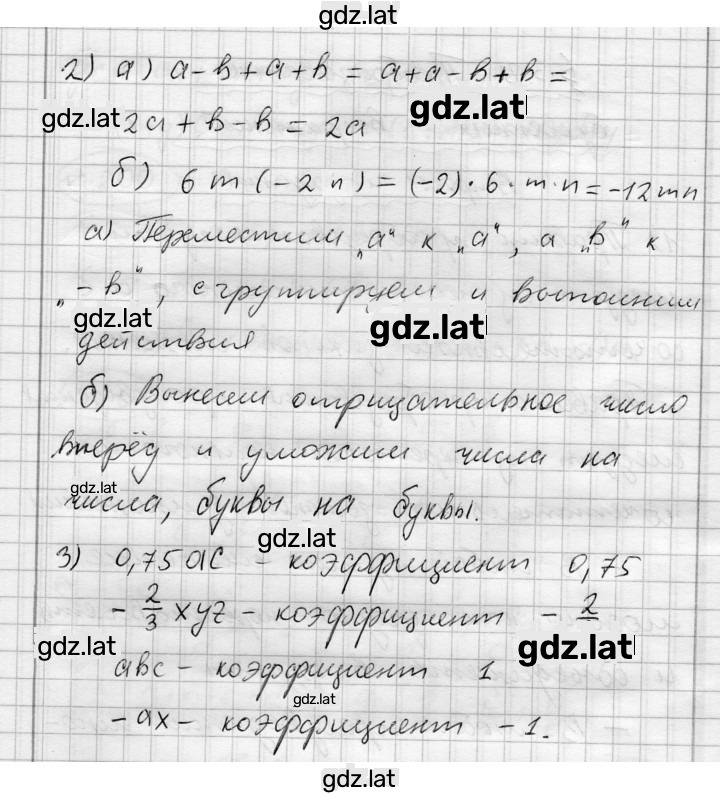 gdz.lat
2) а) a-b+a+b = a+a-b+b =
gdz.lat
gdz.lat 2a+b-b = 2a
б) 6m(-2n) = (-2)·6·m·n = -12mn
а) Переместим „a“ к „a“, а „b“ к
„-b“, сгруппируем и выполним
gdz.lat gdz.lat
действия
б) Вынесем отрицательное число
вперёд и умножим числа на
gdz.lat
числа, буквы на буквы.
gdz.lat
3) 0,75ac - коэффициент 0,75
-2/3 xyz - коэффициент -2
gdz.lat gdz.lat
abc - коэффициент 1
gdz.lat
-ax - коэффициент -1.
gdz.lat